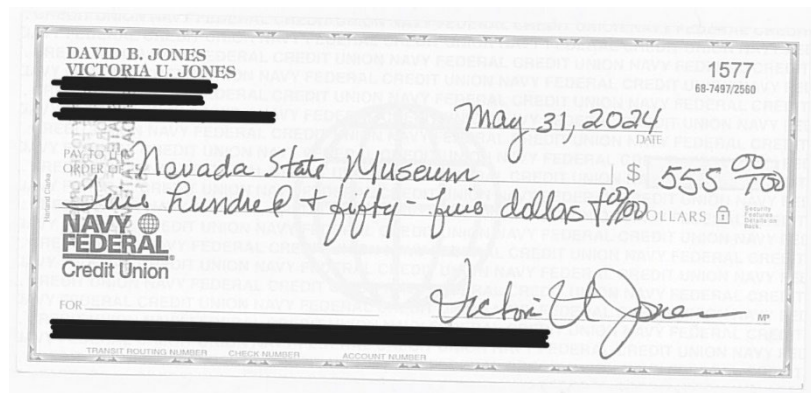 DAVID B. JONES
VICTORIA U. JONES
1577
68-7497/2560
May 31, 2024
DATE
PAY TO THE
ORDER OF Nevada State Museum $ 555 00/100
Five hundred + fifty-five dollars + 00/100 DOLLARS
Security
Features
Details on
Back.
Harland Clarke
NAVY
FEDERAL
Credit Union
FOR
Victoria U Jones
MP
TRANSIT ROUTING NUMBER CHECK NUMBER ACCOUNT NUMBER